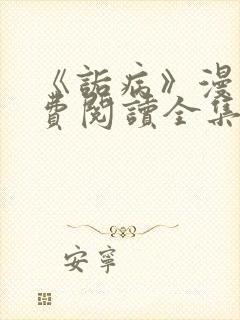 《詬病》漫
費閱讀全集
安寧